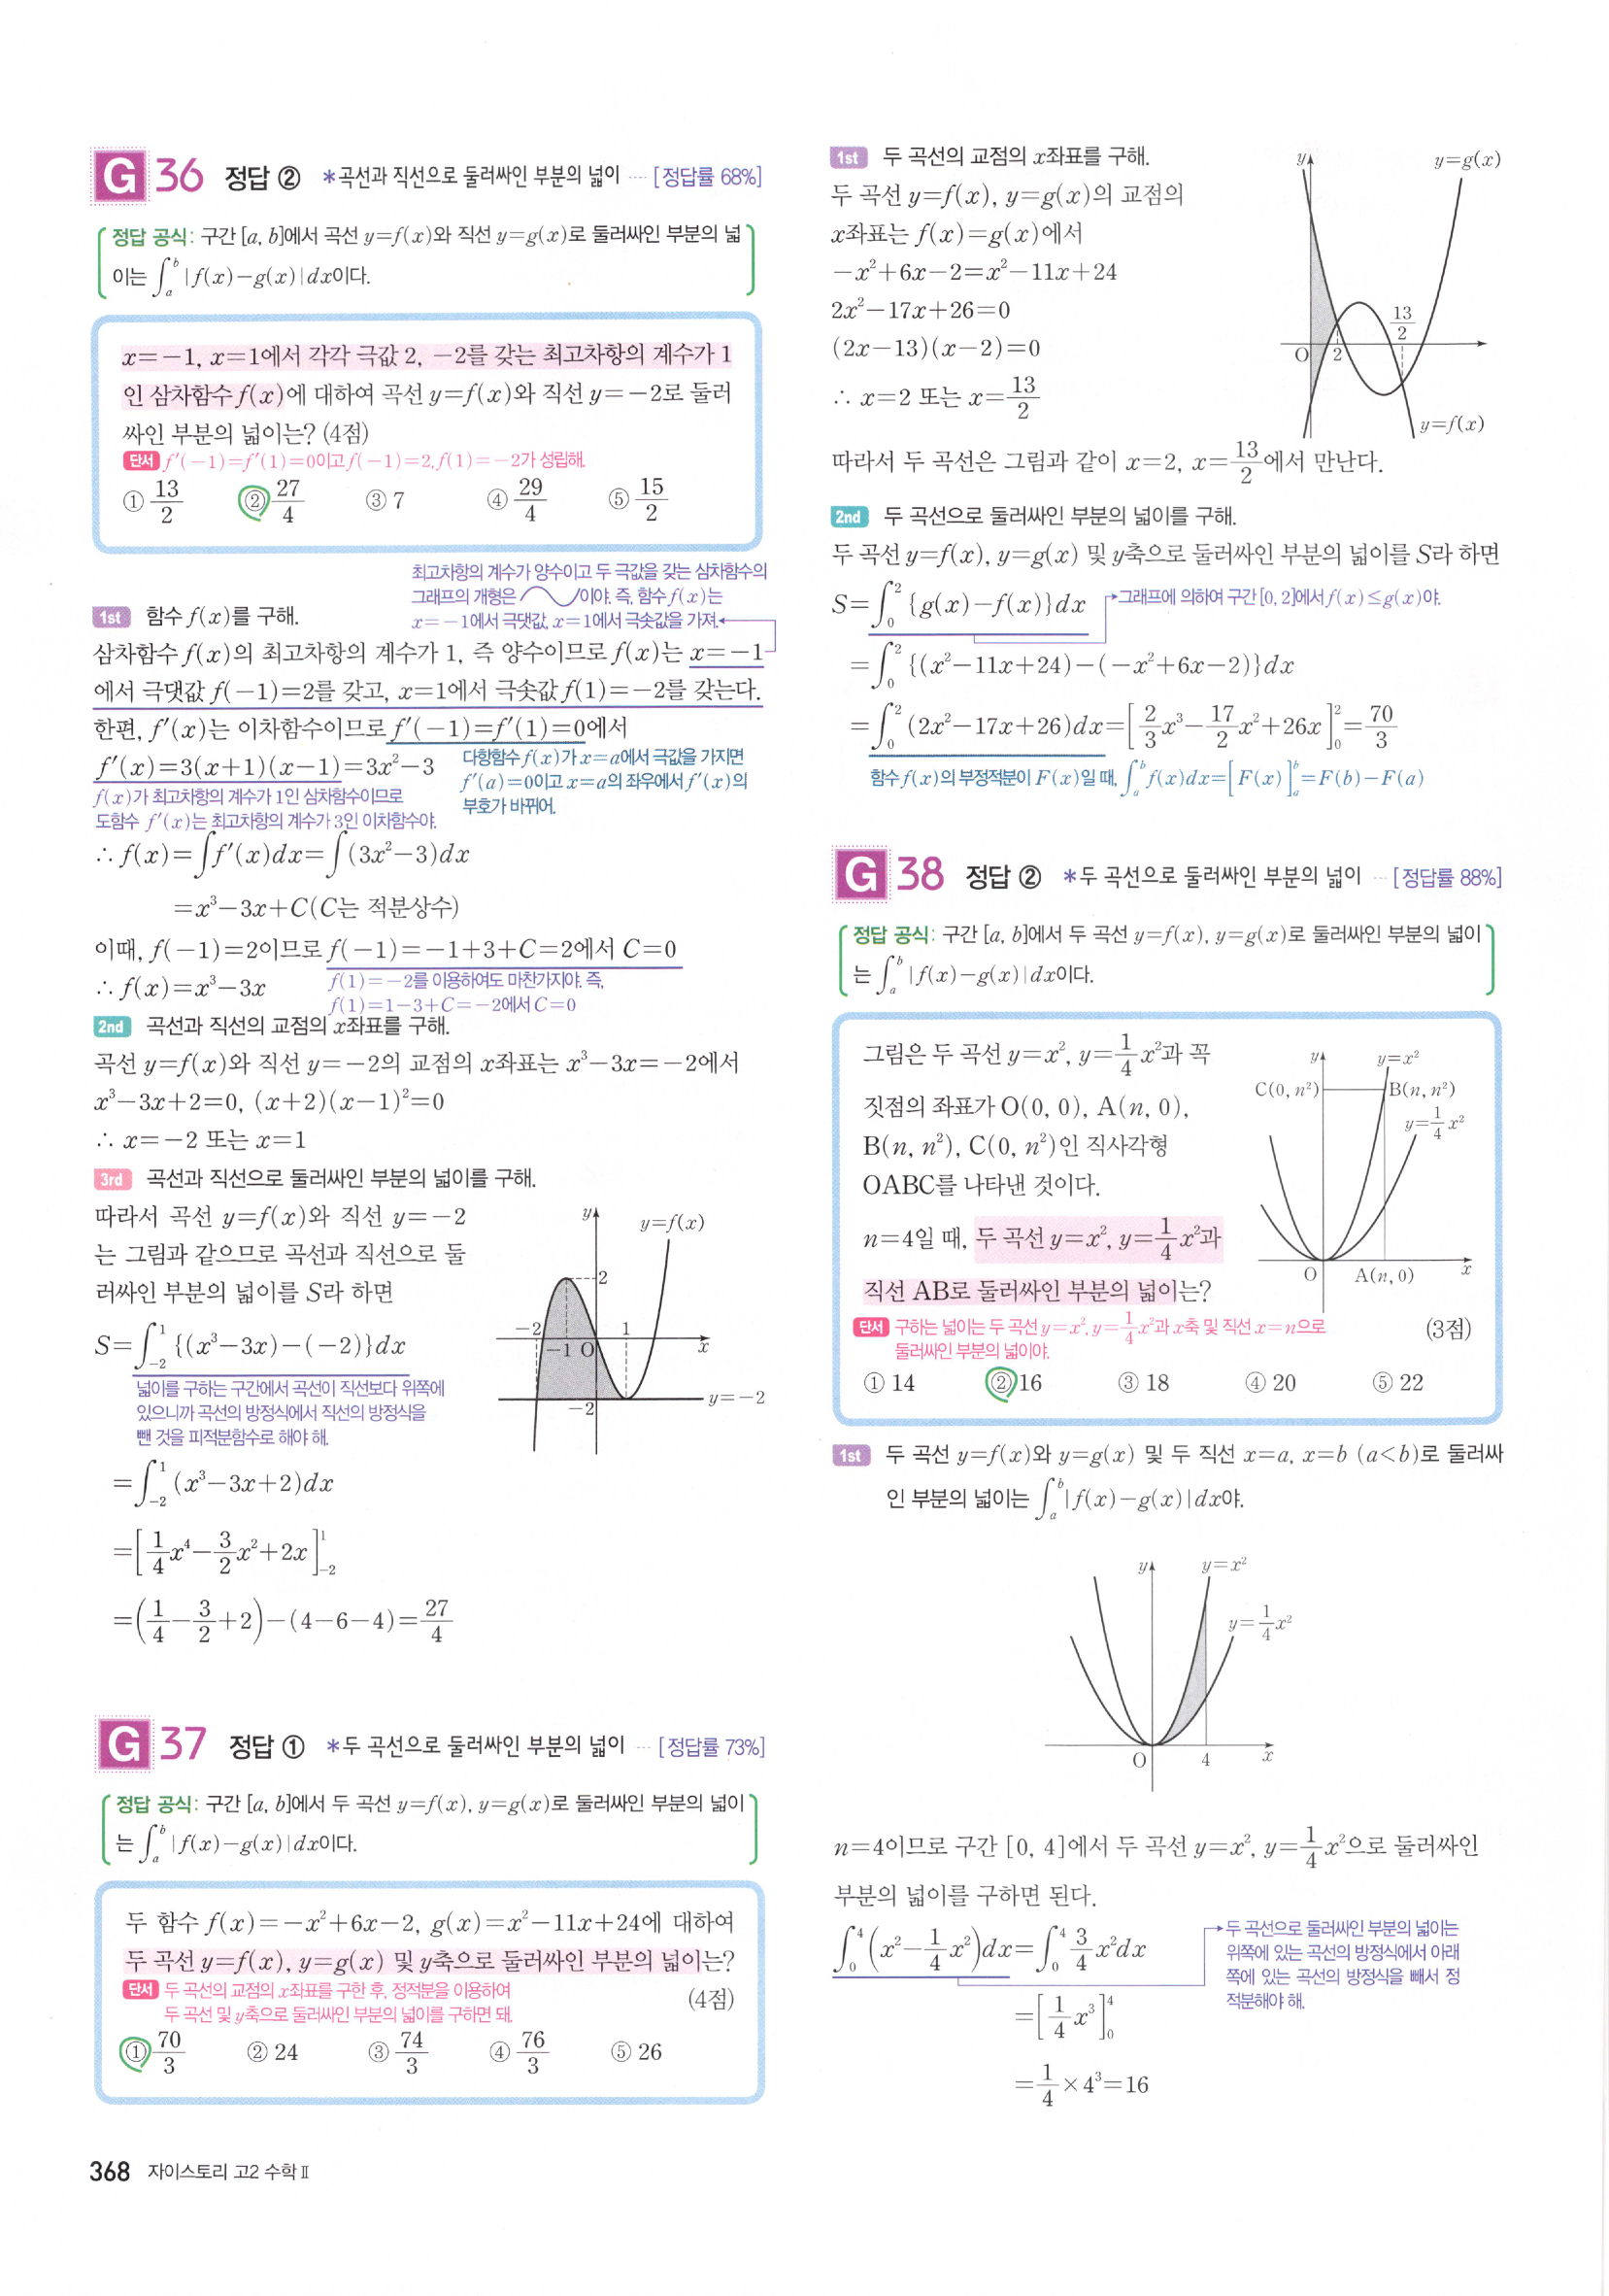 G 36 정답 ② *곡선과 직선으로 둘러싸인 부분의 넓이 ···· [정답률 68%]
정답 공식: 구간 [a, b]에서 곡선 y=f(x)와 직선 y=g(x)로 둘러싸인 부분의 넓
이는 ∫_a^b |f(x)-g(x)|dx이다.
x=-1, x=1에서 각각 극값 2, -2를 갖는 최고차항의 계수가 1
인 삼차함수 f(x)에 대하여 곡선 y=f(x)와 직선 y=-2로 둘러
싸인 부분의 넓이는? (4점)
단서 f'(-1)=f'(1)=0이고 f(-1)=2, f(1)=-2가 성립해.
① 13/2 ② 27/4 ③ 7 ④ 29/4 ⑤ 15/2
최고차항의 계수가 양수이고 두 극값을 갖는 삼차함수의
그래프의 개형은 이야. 즉, 함수 f(x)는
x=-1에서 극댓값, x=1에서 극솟값을 가져.
1st 함수 f(x)를 구해.
삼차함수 f(x)의 최고차항의 계수가 1, 즉 양수이므로 f(x)는 x=-1
에서 극댓값 f(-1)=2를 갖고, x=1에서 극솟값 f(1)=-2를 갖는다.
한편, f'(x)는 이차함수이므로 f'(-1)=f'(1)=0에서
f'(x)=3(x+1)(x-1)=3x²-3
다항함수 f(x)가 x=a에서 극값을 가지면
f'(a)=0이고 x=a의 좌우에서 f'(x)의
부호가 바뀌어.
f(x)가 최고차항의 계수가 1인 삼차함수이므로
도함수 f'(x)는 최고차항의 계수가 3인 이차함수야.
∴ f(x)=∫f'(x)dx=∫(3x²-3)dx
=x³-3x+C(C는 적분상수)
이때, f(-1)=2이므로 f(-1)=-1+3+C=2에서 C=0
∴ f(x)=x³-3x
f(1)=-2를 이용하여도 마찬가지야. 즉,
f(1)=1-3+C=-2에서 C=0
2nd 곡선과 직선의 교점의 x좌표를 구해.
곡선 y=f(x)와 직선 y=-2의 교점의 x좌표는 x³-3x=-2에서
x³-3x+2=0, (x+2)(x-1)²=0
∴ x=-2 또는 x=1
3rd 곡선과 직선으로 둘러싸인 부분의 넓이를 구해.
따라서 곡선 y=f(x)와 직선 y=-2
는 그림과 같으므로 곡선과 직선으로 둘
러싸인 부분의 넓이를 S라 하면
S=∫_{-2}^1 {(x³-3x)-(-2)}dx
넓이를 구하는 구간에서 곡선이 직선보다 위쪽에
있으니까 곡선의 방정식에서 직선의 방정식을
뺀 것을 피적분함수로 해야 해.
=∫_{-2}^1 (x³-3x+2)dx
=[1/4x⁴-3/2x²+2x]_{-2}^1
=(1/4-3/2+2)-(4-6-4)=27/4
y
y=f(x)
2
-2
1
-1
O
x
y=-2
-2
G 37 정답 ① *두 곡선으로 둘러싸인 부분의 넓이 ··· [정답률 73%]
정답 공식: 구간 [a, b]에서 두 곡선 y=f(x), y=g(x)로 둘러싸인 부분의 넓이
는 ∫_a^b |f(x)-g(x)|dx이다.
두 함수 f(x)=-x²+6x-2, g(x)=x²-11x+24에 대하여
두 곡선 y=f(x), y=g(x) 및 y축으로 둘러싸인 부분의 넓이는?
(4점)
단서 두 곡선의 교점의 x좌표를 구한 후, 정적분을 이용하여
두 곡선 및 y축으로 둘러싸인 부분의 넓이를 구하면 돼.
① 70/3 ② 24 ③ 74/3 ④ 76/3 ⑤ 26
368 자이스토리 고2 수학Ⅱ
1st 두 곡선의 교점의 x좌표를 구해.
두 곡선 y=f(x), y=g(x)의 교점의
x좌표는 f(x)=g(x)에서
-x²+6x-2=x²-11x+24
2x²-17x+26=0
(2x-13)(x-2)=0
∴ x=2 또는 x=13/2
y
y=g(x)
13/2
O
2
y=f(x)
따라서 두 곡선은 그림과 같이 x=2, x=13/2에서 만난다.
2nd 두 곡선으로 둘러싸인 부분의 넓이를 구해.
두 곡선 y=f(x), y=g(x) 및 y축으로 둘러싸인 부분의 넓이를 S라 하면
S=∫_0^2 {g(x)-f(x)}dx 그래프에 의하여 구간 [0, 2]에서 f(x)≤g(x)야.
=∫_0^2 {(x²-11x+24)-(-x²+6x-2)}dx
=∫_0^2 (2x²-17x+26)dx=[2/3x³-17/2x²+26x]_0^2=70/3
함수 f(x)의 부정적분이 F(x)일 때, ∫_a^b f(x)dx=[F(x)]_a^b=F(b)-F(a)
G 38 정답 ② *두 곡선으로 둘러싸인 부분의 넓이 ··· [정답률 88%]
정답 공식: 구간 [a, b]에서 두 곡선 y=f(x), y=g(x)로 둘러싸인 부분의 넓이
는 ∫_a^b |f(x)-g(x)|dx이다.
그림은 두 곡선 y=x², y=1/4x²과 꼭
짓점의 좌표가 O(0, 0), A(n, 0),
B(n, n²), C(0, n²)인 직사각형
OABC를 나타낸 것이다.
n=4일 때, 두 곡선 y=x², y=1/4x²과
직선 AB로 둘러싸인 부분의 넓이는?
(3점)
y
y=x²
C(0, n²)
B(n, n²)
y=1/4x²
O
A(n, 0)
x
단서 구하는 넓이는 두 곡선 y=x², y=1/4x²과 x축 및 직선 x=n으로
둘러싸인 부분의 넓이야.
① 14 ② 16 ③ 18 ④ 20 ⑤ 22
1st 두 곡선 y=f(x)와 y=g(x) 및 두 직선 x=a, x=b (a<b)로 둘러싸
인 부분의 넓이는 ∫_a^b |f(x)-g(x)|dx야.
y
y=x²
y=1/4x²
O
4
x
n=4이므로 구간 [0, 4]에서 두 곡선 y=x², y=1/4x²으로 둘러싸인
부분의 넓이를 구하면 된다.
∫_0^4 (x²-1/4x²)dx=∫_0^4 3/4x²dx
=[1/4x³]_0^4
=1/4×4³=16
두 곡선으로 둘러싸인 부분의 넓이는
위쪽에 있는 곡선의 방정식에서 아래
쪽에 있는 곡선의 방정식을 빼서 정
적분해야 해.